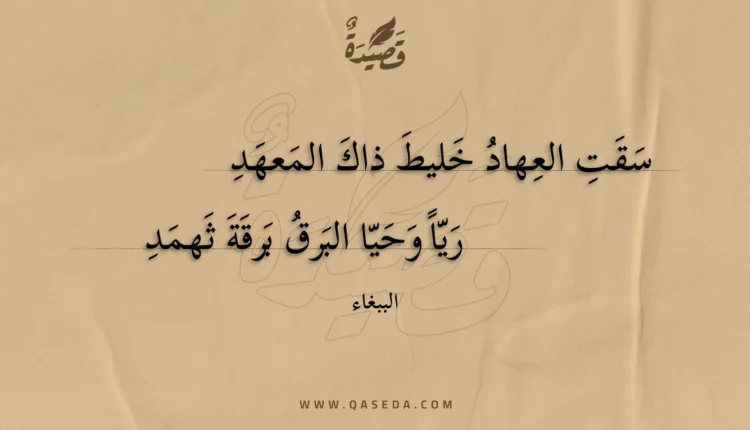 قَصِيدَةٌ
سَقَتِ العِهادُ خَليطَ ذاكَ المَعهَدِ
رَيّاً وَحَيّا البَرقُ بَرقَةَ ثَهمَدِ
الببغاء
WWW.QASEDA.COM